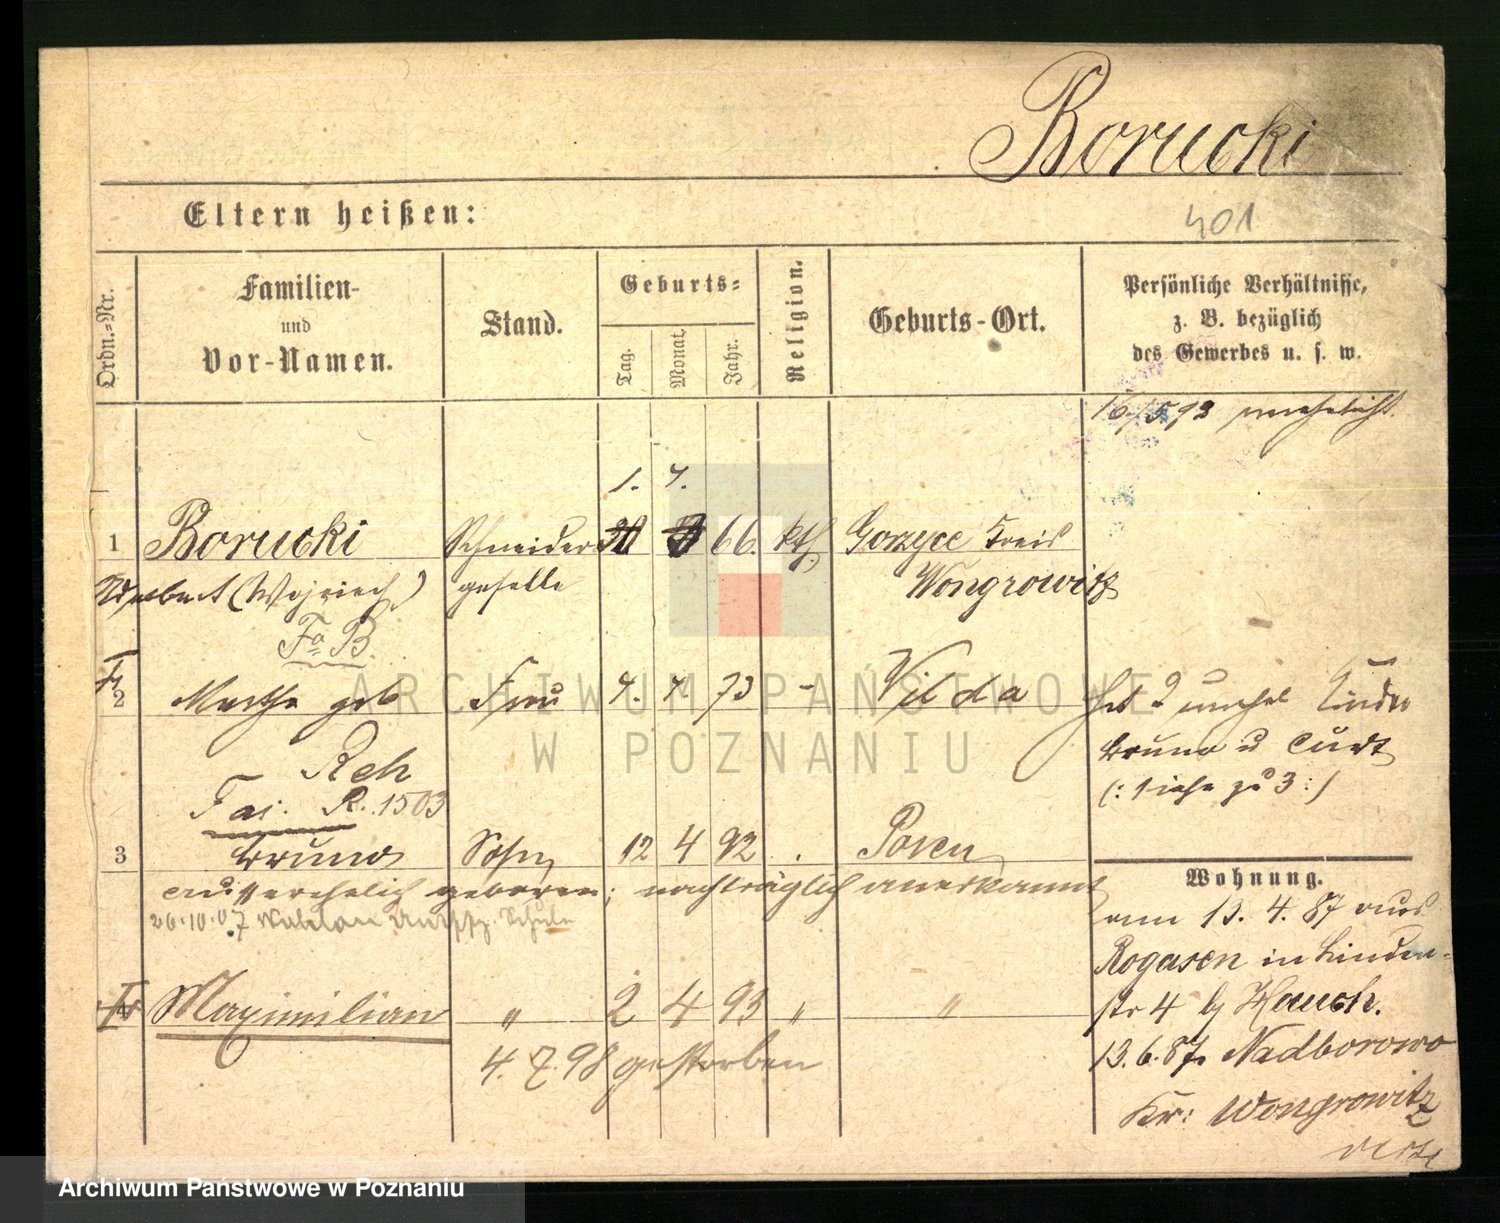 Borucki
401
Eltern heißen:
Ordn.=Nr.
Familien-
und
Vor-Namen.
Stand.
Geburts=
Tag.
Monat.
Jahr.
Religion.
Geburts-Ort.
Persönliche Verhältnisse,
z. B. bezüglich
des Gewerbes u. s. w.
16/5 93 verehelicht.
1. 7.
1 Borucki Schneider 66. kth. Gorzyce Kreis
(Wojciech) geselle Wongrowitz
Fa B.
2 Martha geb Frau 4. 7. 73 - Wilda
Hat 2 unehel Kinder
Bruno u Curt
(: siehe zu 3 :)
Reh
R. 1503
3 Bruno Sohn 12 4 92 . Posen
ausserehelich geboren; nachträglich anerkannt
26.10.07
Wohnung.
am 13. 4. 87 aus
Rogasen in Linden-
str 4 b/ Hauch.
13.6.87. Nadborowo
Kr: Wongrowitz
4 Maximilian " 2 4 93 " "
4. 7. 98 gestorben
ARCHIWUM PAŃSTWOWE
W POZNANIU
Archiwum Państwowe w Poznaniu